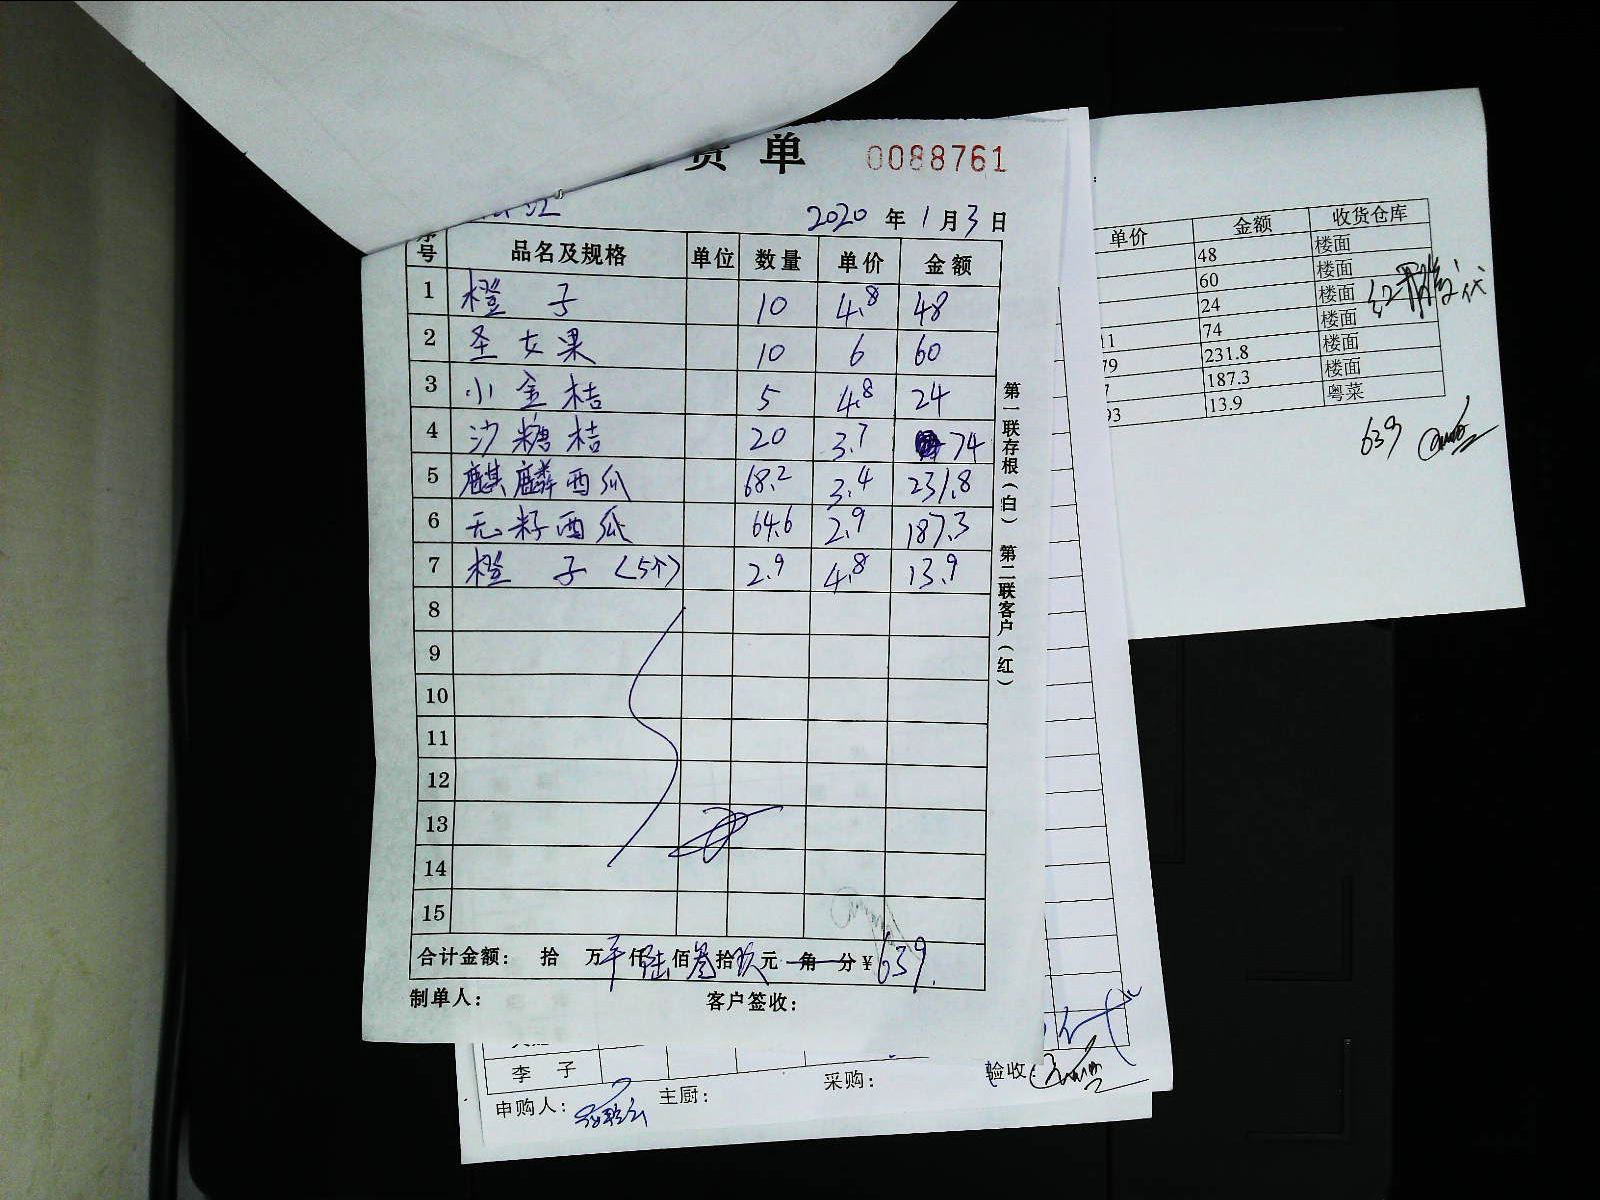 货单 0088761
2020 年 1 月 3 日
序号 品名及规格 单位 数量 单价 金额
1 橙子 10 4.8 48
2 圣女果 10 6 60
3 小金桔 5 4.8 24
4 沙糖桔 20 3.7 74
5 麒麟西瓜 68.2 3.4 231.8
6 无籽西瓜 64.6 2.9 187.3
7 橙子(5个) 2.9 4.8 13.9
8
9
10
11
12
13
14
15
合计金额： 拾 万 仟 陆 佰 叁 拾 玖 元 角 分 ¥ 639.
制单人： 客户签收：
第一联存根(白) 第二联客户(红)
单价 金额 收货仓库
48 楼面
60 楼面
24 楼面
11 74 楼面
79 231.8 楼面
7 187.3 楼面
93 13.9 粤菜
639
李子
申购人： 主厨： 采购： 验收：